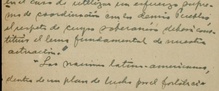 en el caso de utilizar un esfuerzo supre-
mo de coordinación con los demás Pueblos
el respeto de cuya soberanía deberá cons-
tituir el lema fundamental de nuestra
actuación."
"Las naciones latino-americanas,
dentro de un plan de lucha por el fortaleci-